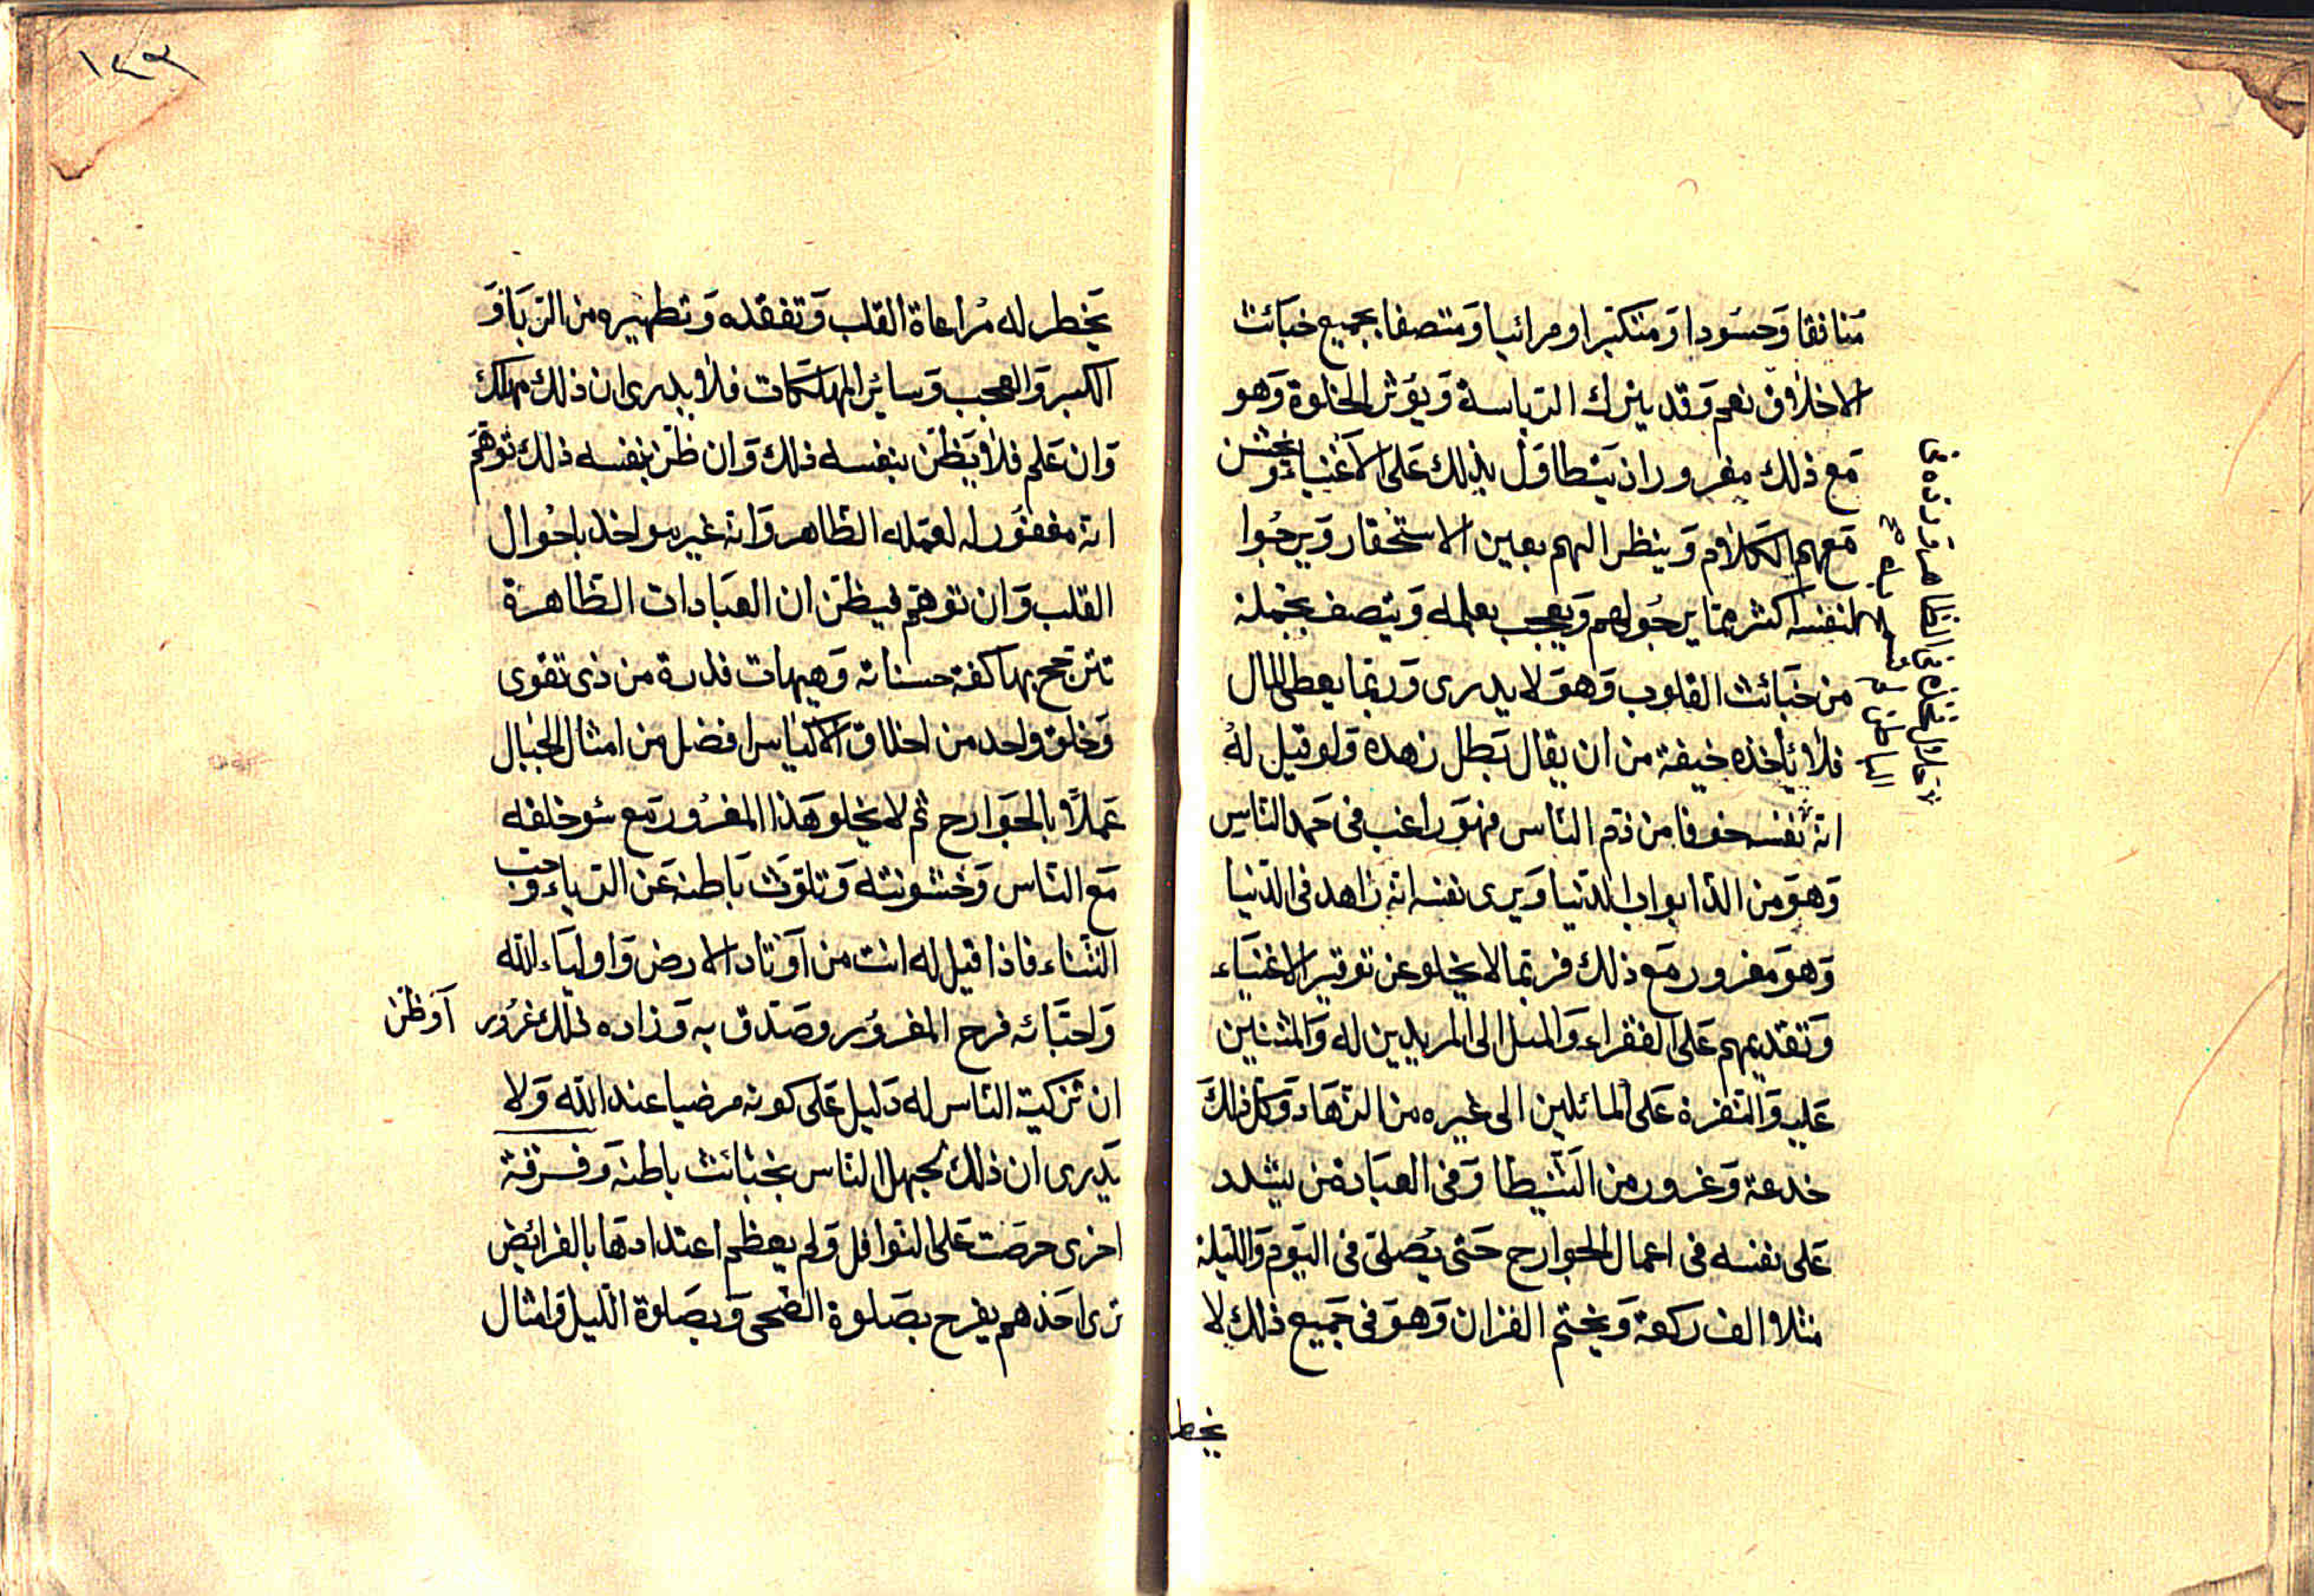 منافقا وَحسَودا وَمتكبرا ومرائيا وَمتصفا بجميع خبَائث
الاخلاق نعم وَقد يترك الرياسة وَيؤثر الخلوة وَهو
مَع ذلك مغرور اذ يَتطاوَل بذلك عَلى الاغنياء وَيخشن
مَعهم الكلام وَينظر اليهم بعين الاستحقار وَيرجُوا
لنفسه اكثر ممّا يرجُو لهم وَيعجب بعلمه وَيتصف بجملة
من خبَائث القلوب وَهوَ لا يدرى وَربّما يعطى المال
فلا يأخذه خيفة من ان يقال بَطل زهده وَلو قيل لهُ
انه نفسه خوفا من ذم الناس فهوَ راغب فى حَمد الناس
وَهوَ من الذ ابواب الدنيا وَيرى نفسه انه زاهد فى الدنيا
وَهوَ مغرور مَع ذلك فربّما لا يخلو عن توقير الاغنيَاء
وَتقديمهم عَلى الفقراء وَالميل الى المريدين له وَالمثنين
عَليه وَالنفرة عَلى المائلين الى غيره من الزهَاد وَكل ذلكَ
خدعة وَغرور من الشيطا وَفى العبَاد من يشدد
عَلى نفسه فى اعمال الجوارح حَتى يُصلى فى اليَوم وَالليلة
مثلا الف ركعة وَيختم القران وَهوَ فى جَميع ذلك لا
يخطر
١٢٣
يَخطر له مُراعاة القلب وَتفقده وَتطهيره من الريَا وَ
الكبر وَالعجب وَسائر المهلكات فلا يدرى ان ذلك مهلك
وَان عَلم فلا يَظن بنفسه ذلك وَان ظن بنفسه ذلك توَهّم
انه مغفوُر له لعمَله الظاهر وَانه غير مواخذ باحْوال
القلب وَان توهّم فيظنّ ان العبَادات الظاهرة
تترجح بها كفة حسناته وَهيهات فذرة من ذى تقوى
وَخلق واحد من اخلاق الاكياس افضل من امثال الجبال
عَملاً بالجَوارح ثم لا يخلو هَذا المغرُور مَع سُو خلقه
مَع الناس وَخشونته وَتلوّث بَاطنه عَن الرياء وَحب
الثناء فاذا قيل له انت من اَوْتاد الارض وَاوليَاء الله
وَاحبَائه فرح المغروُر وصَدق به وَزاده ذلك غرُور
اَوَظن
ان تزكية الناس له دَليل عَلى كونه مرضيا عند الله وَلا
يَدرى ان ذلك لجهل الناس بخبائث باطنه وَفرقة
اخرى حرصَت عَلى النوافل وَلم يعظم اعتدادهَا بالفرائض
ترى احَدهم يفرح بصَلوة الضحى وَبصَلوة الليل وَامثال